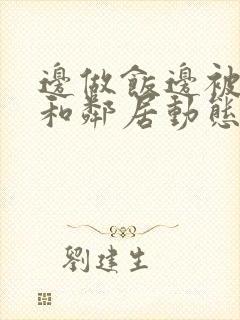 邊做飯邊被
和鄰居動態
劉建生